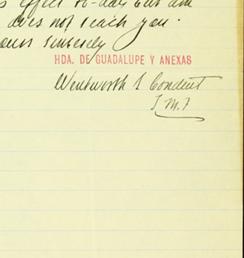 effect to-day but am
does not reach you.
Yours sincerely
HDA. DE GUADALUPE Y ANEXAS
Wentworth S Conduit